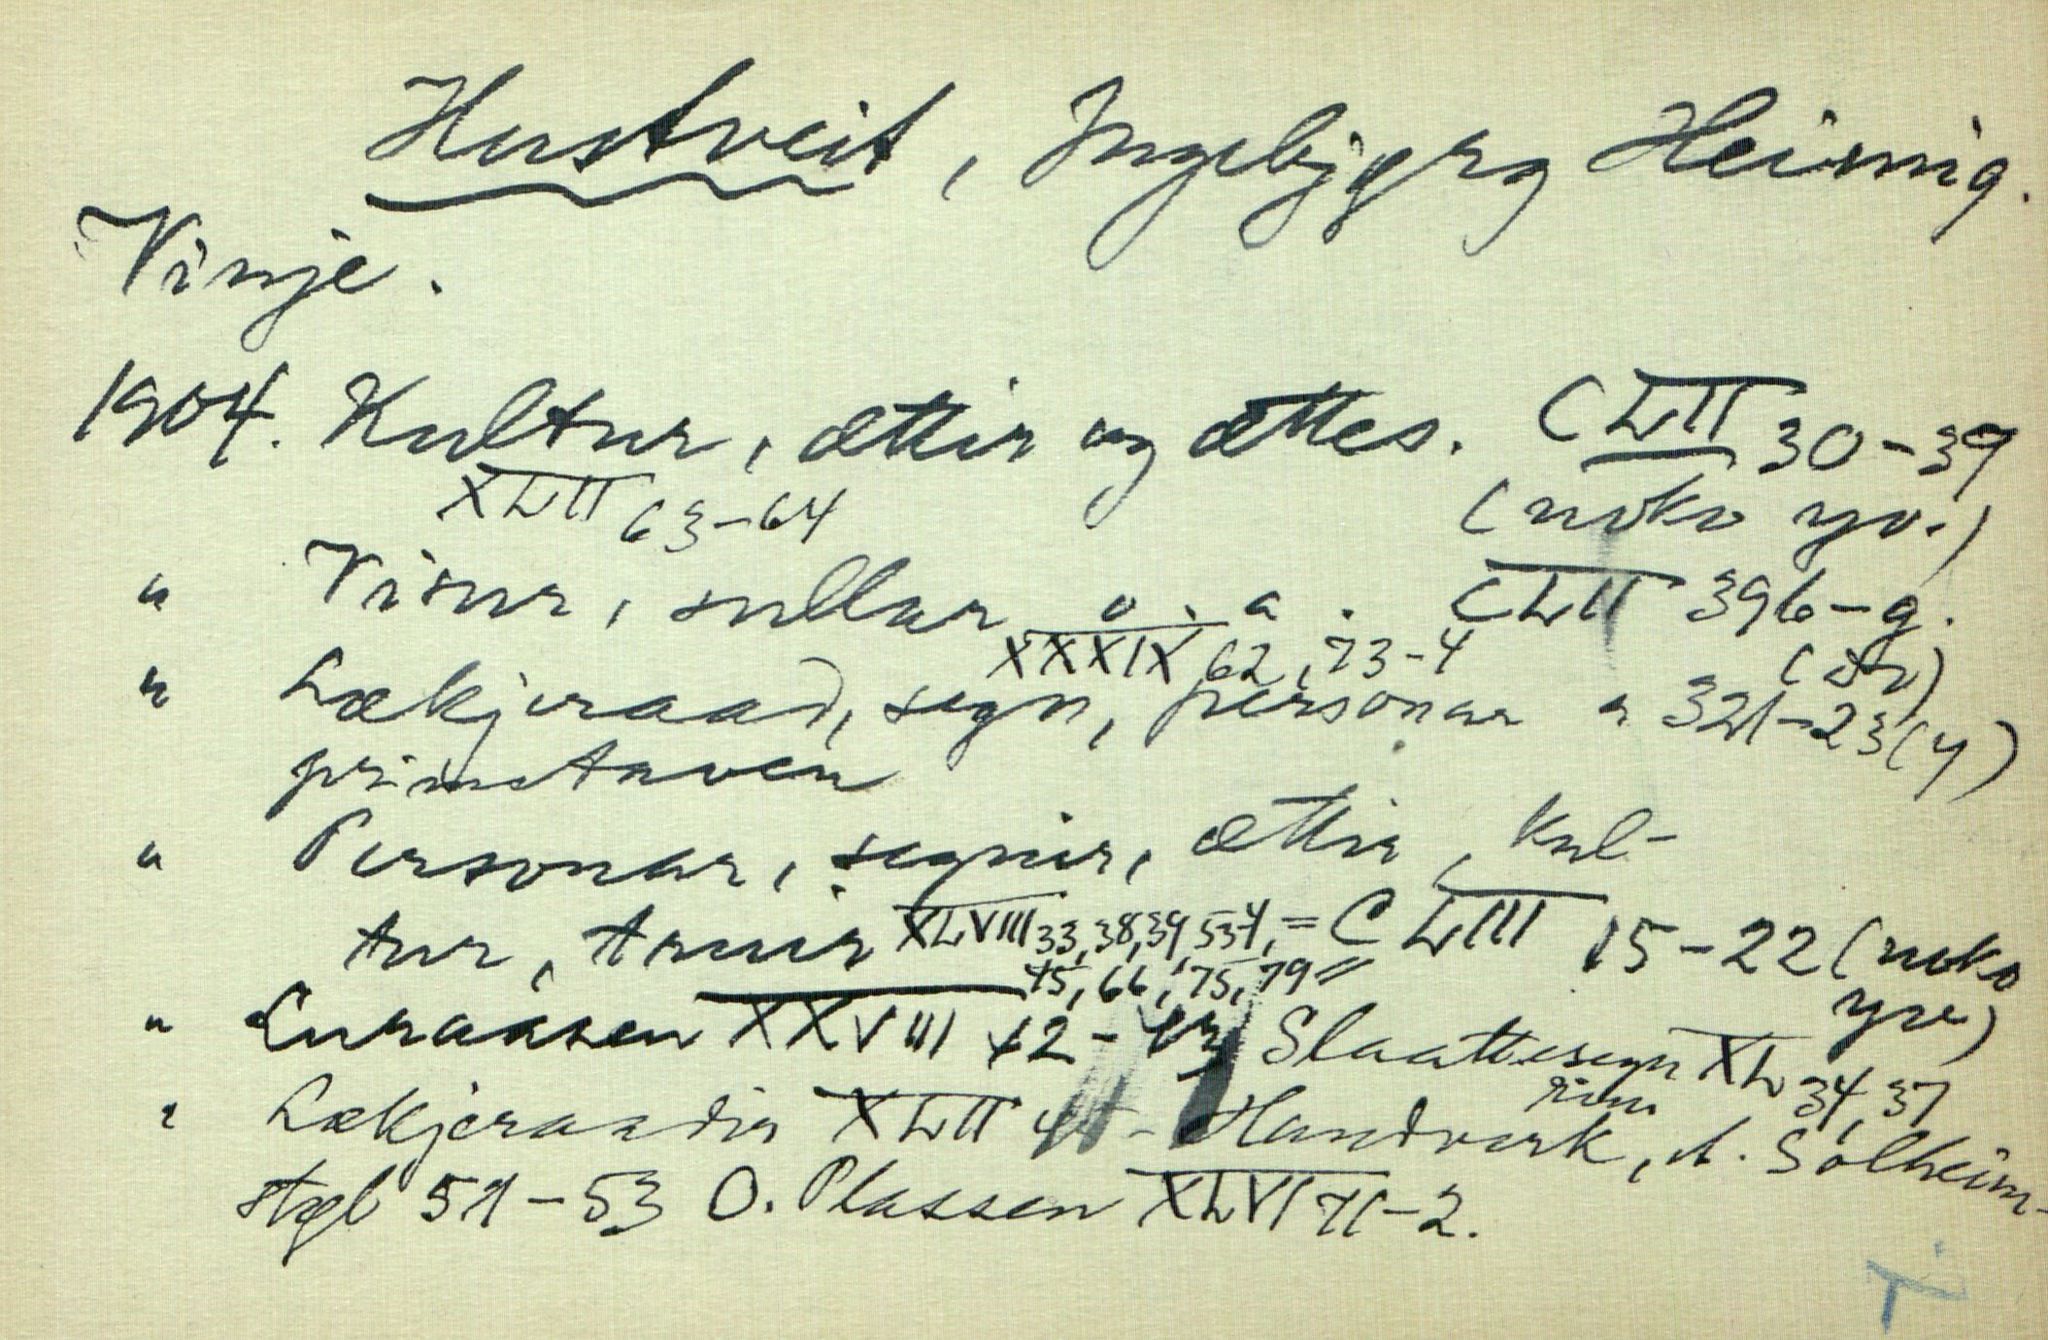 Hustveit, Ingebjørg Heimig.
Vinje.
1904. Kultur, ættir og ættes. CLII 30-39
XLII 63-64 (noko yv.)
" Visur, sullar o. a. CLII 396-9.
XXXIX 62, 73-4
" Lækjeraad, segn, personar " 321-23 (y)
primstaven
" Personar, segnir, ættir, kul-
tur, truir XLVIII 33, 38, 39, 534, = CLIII 15-22 (noko
45, 66, 75, 79" yv.)
" Luraasen XXVIII 42-43 Slaattesegn XL 34, 37
rim
" Lækjeraadir XLII - Handverk, A. Sólheim-
stgl 51-53 O. Plassen XLVI 71-2.